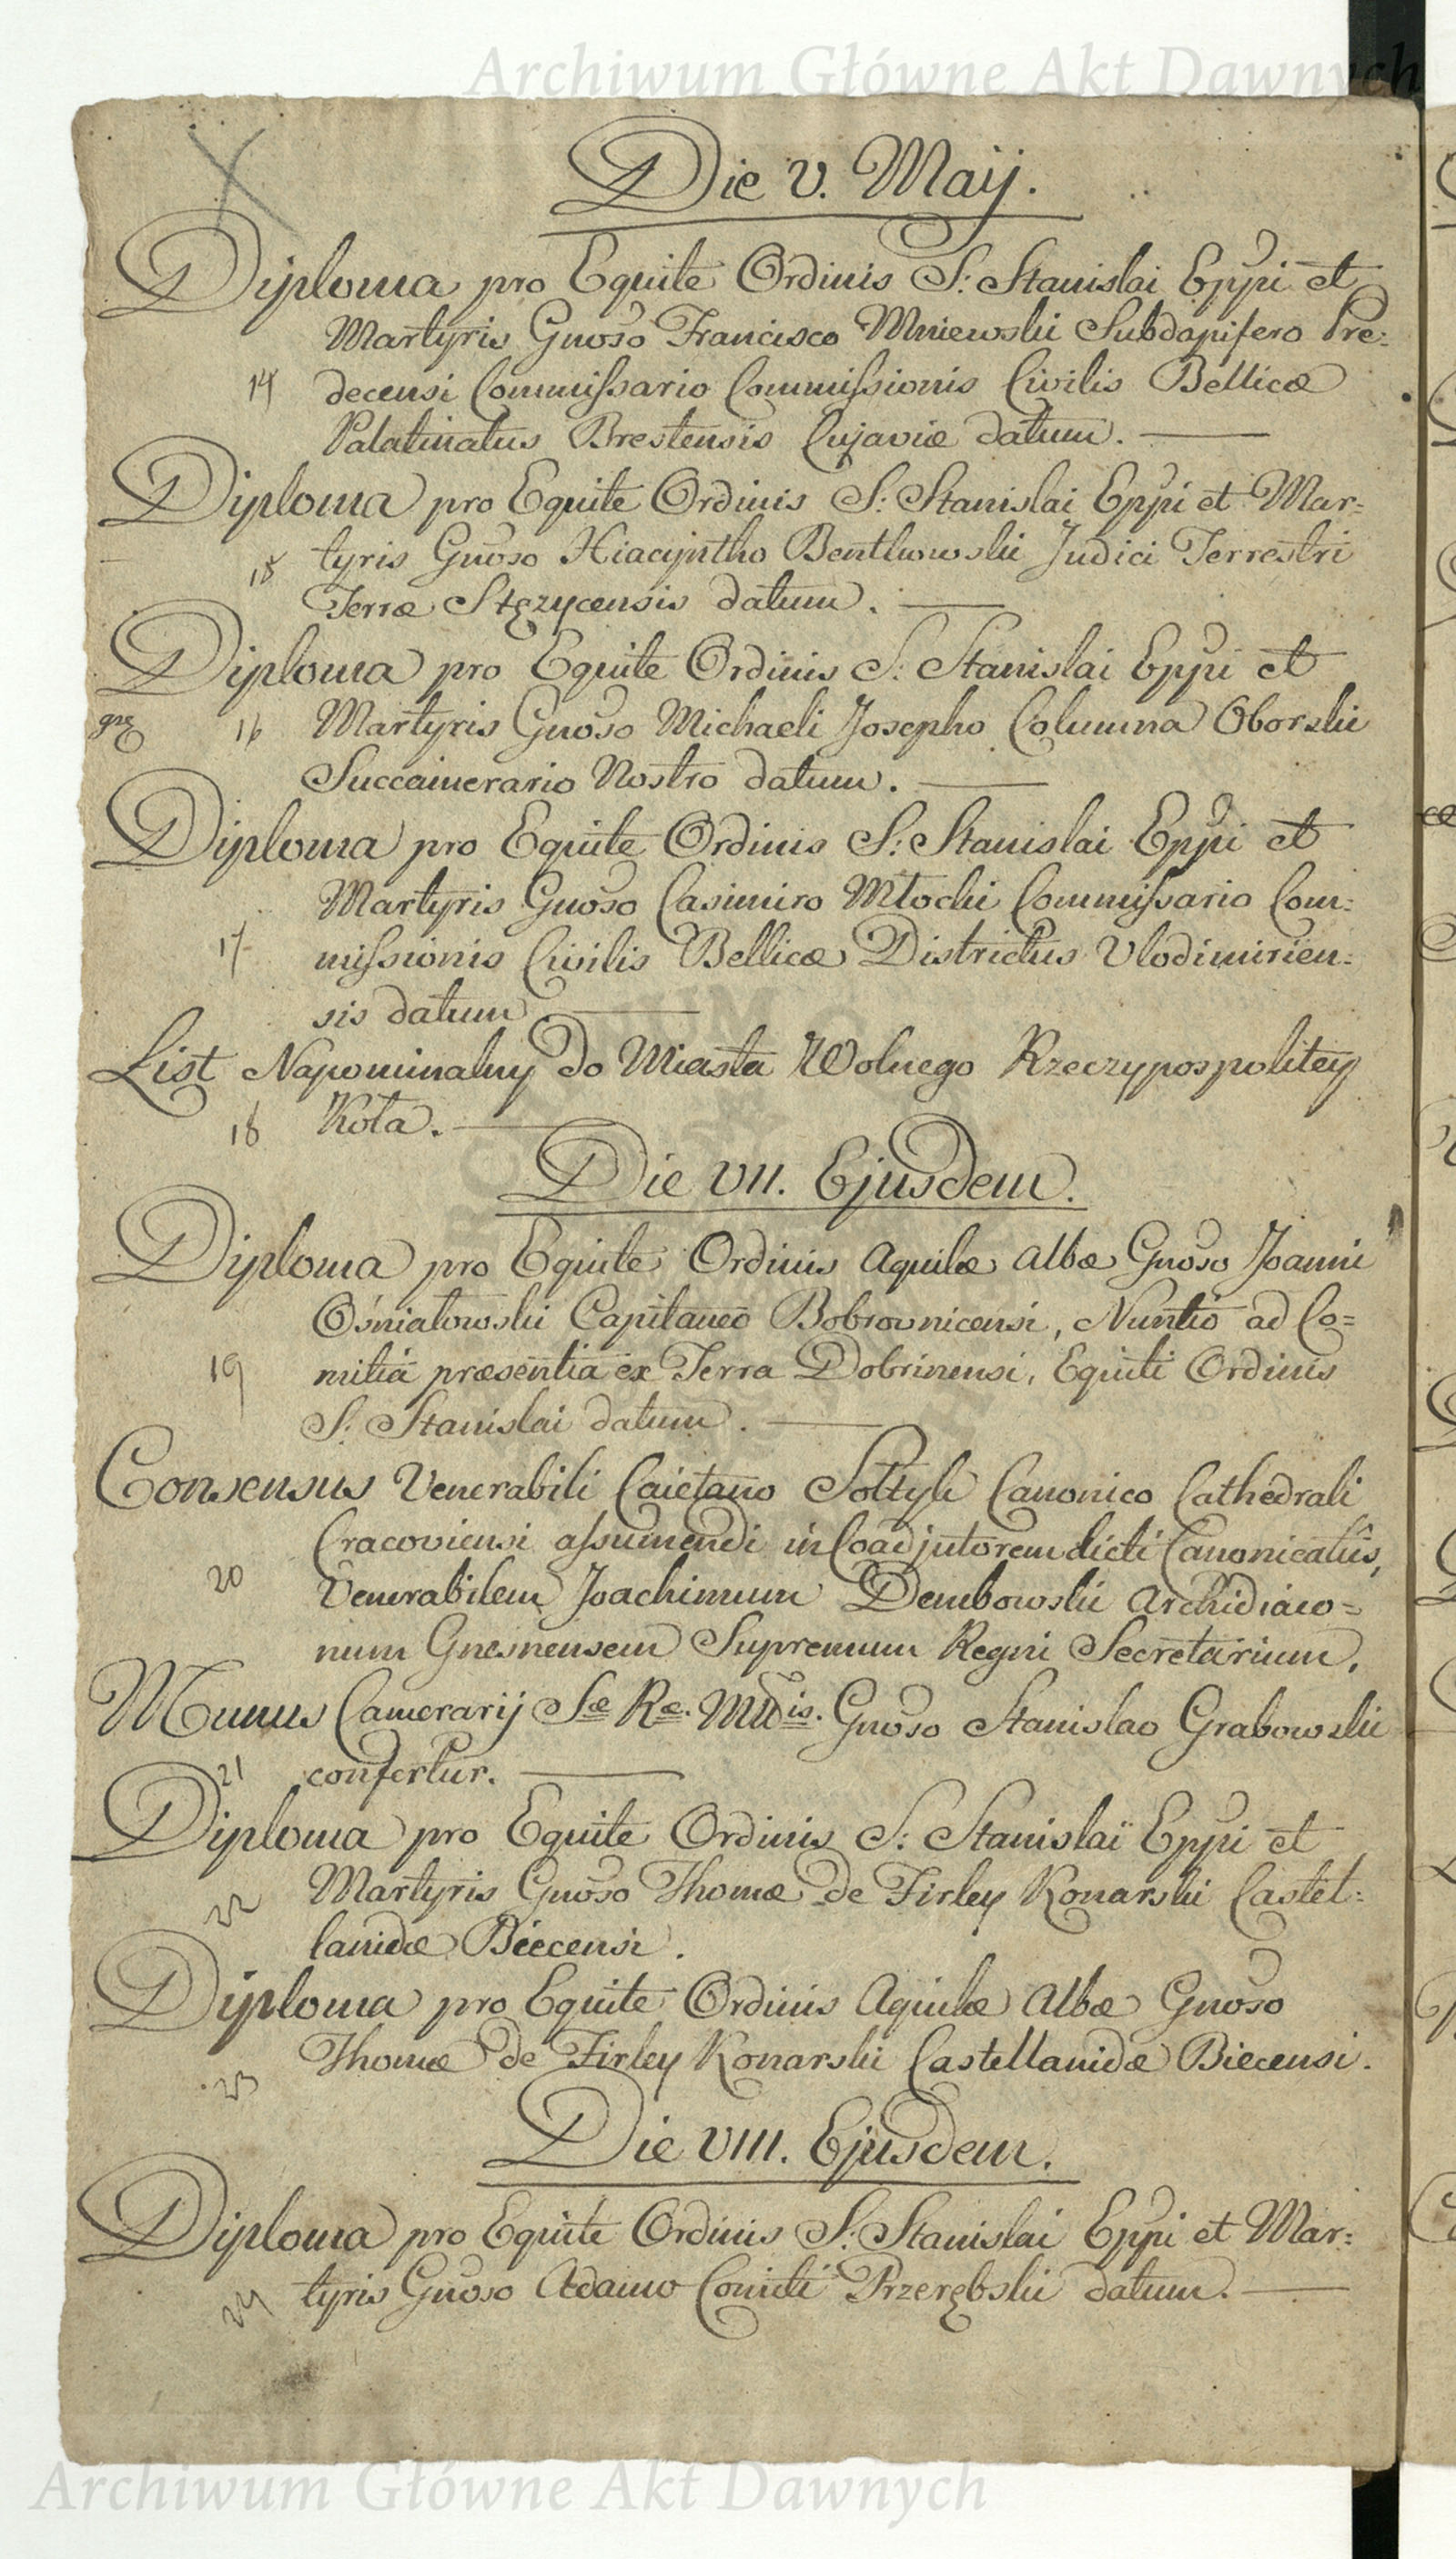 Archiwum Główne Akt Dawnych
Die V. Maij.
Diploma pro Equite Ordinis S: Stanislai Eppi et
Martyris Gnoso Francisco Mniewski Subdapifero Pre:
14 decensi Commissario Commissionis Civilis Bellicæ
Palatinatus Brestensis Cujaviæ datum.
Diploma pro Equite Ordinis S: Stanislai Eppi et Mar:
15 tyris Gnoso Hiacyntho Bentkowski Judici Terrestri
Terræ Stęzycensis datum.
Diploma pro Equite Ordinis S: Stanislai Eppi et
16 Martyris Gnoso Michaeli Josepho Columna Oborski
Succamerario Nostro datum.
Diploma pro Equite Ordinis S: Stanislai Eppi et
Martyris Gnoso Casimiro Młocki Commissario Com:
17 missionis Civilis Bellicæ Districtus Vlodimirien:
sis datum
List Napominalny do Miasta Wolnego Rzeczypospolitey
18 Koła.
Die VII. Ejusdem.
Diploma pro Equite Ordinis Aquilæ Albæ Gnoso Joanni
Ośniałowski Capitaneo Bobrovnicensi, Nuntio ad Co=
19 mitia præsentia ex Terra Dobrinensi, Equiti Ordinis
S: Stanislai datum.
Consensus Venerabili Caietano Sołtyk Canonico Cathedrali
Cracoviensi assumendi in Coadjutorem dicti Canonicatûs,
20 Venerabilem Joachimum Dembowski Archidiaco=
num Gnesnensem Supremum Regni Secretarium.
Munus Camerarij Sæ Ræ. Mttis. Gnoso Stanislao Grabowski
21 confertur.
Diploma pro Equite Ordinis S: Stanislai Eppi et
22 Martyris Gnoso Thomæ de Firley Konarski Castel:
lanidæ Biecensi.
Diploma pro Equite Ordinis Aquilæ Albæ Gnoso
23 Thomæ de Firley Konarski Castellanidæ Biecensi.
Die VIII. Ejusdem.
Diploma pro Equite Ordinis S: Stanislai Eppi et Mar:
24 tyris Gnoso Adamo Comiti Przerębski datum.
Archiwum Główne Akt Dawnych